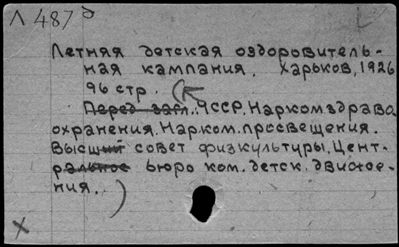 Л 487 д
Летняя детская оздоровитель-
ная кампания. Харьков, 1926
96 стр. (
Перед загл.: УССР. Наркомздраво
охранения. Нарком. просвещения.
Высший совет физкультуры. Цент-
ральное бюро ком. детск. движе-
ния. )
X